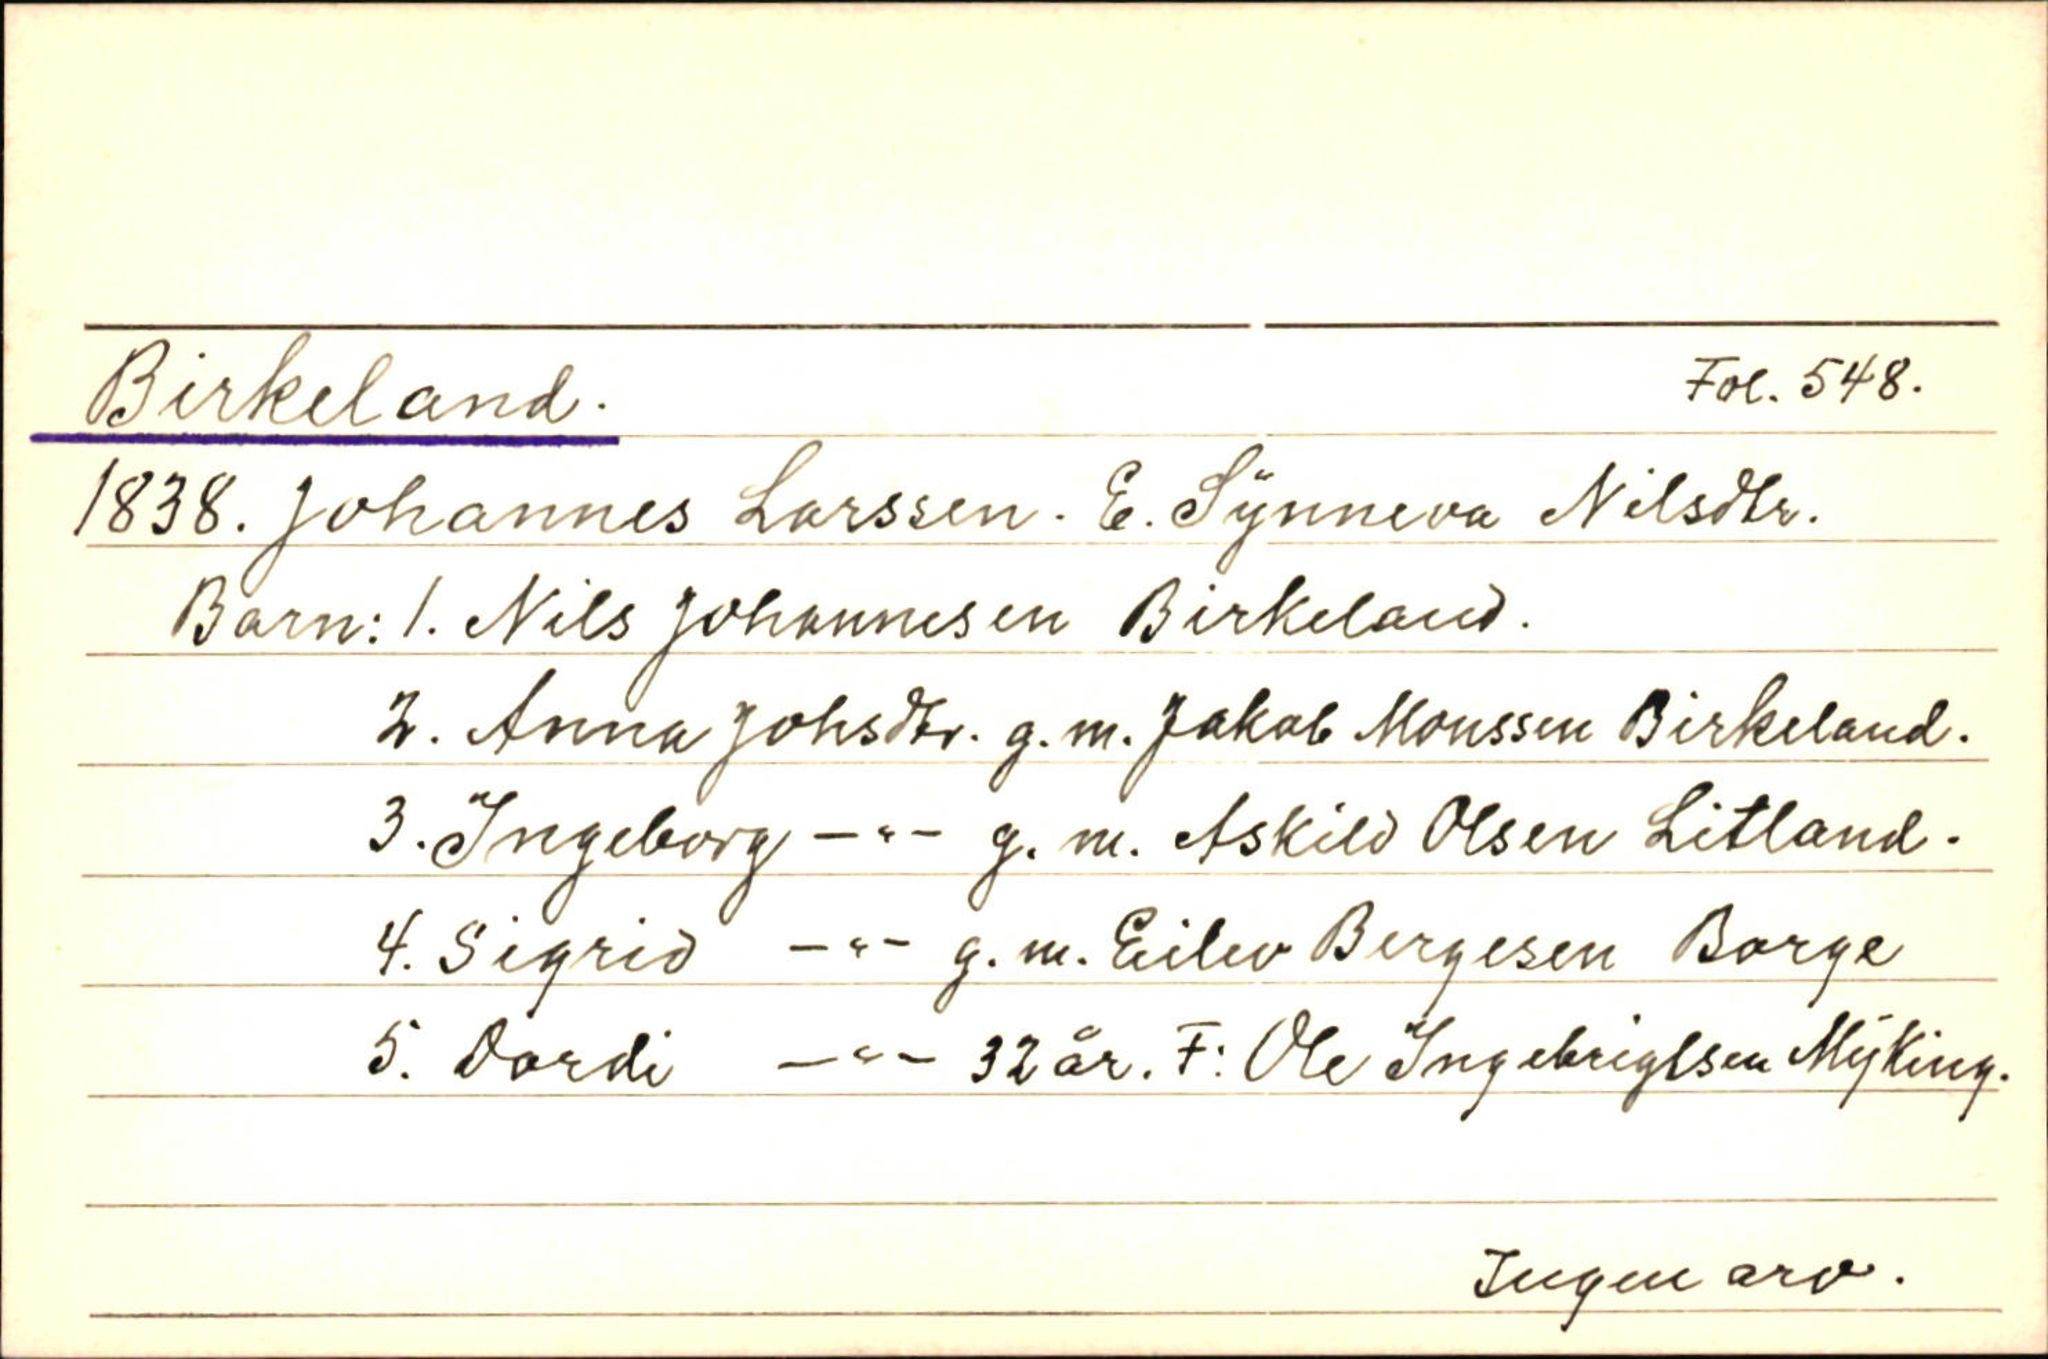 Birkeland. Fol. 548.
1838. Johannes Larssen. E. Sÿnneva Nilsdtr.
Barn: 1. Nils Johannesen Birkeland.
2. Anna Johsdtr. g. m. Jakob Monssen Birkeland.
3. Ingeborg —"— g. m. Askild Olsen Litland.
4. Sigrid —"— g. m. Eilev Bergesen Borge
5. Dordi —"— 32 år. F: Ole Ingebrigtsen Mÿking.
Ingen arv.